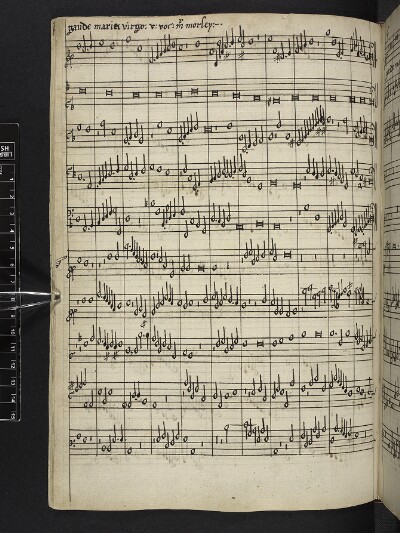 gaude maria virgo: v: voc: mr morley: